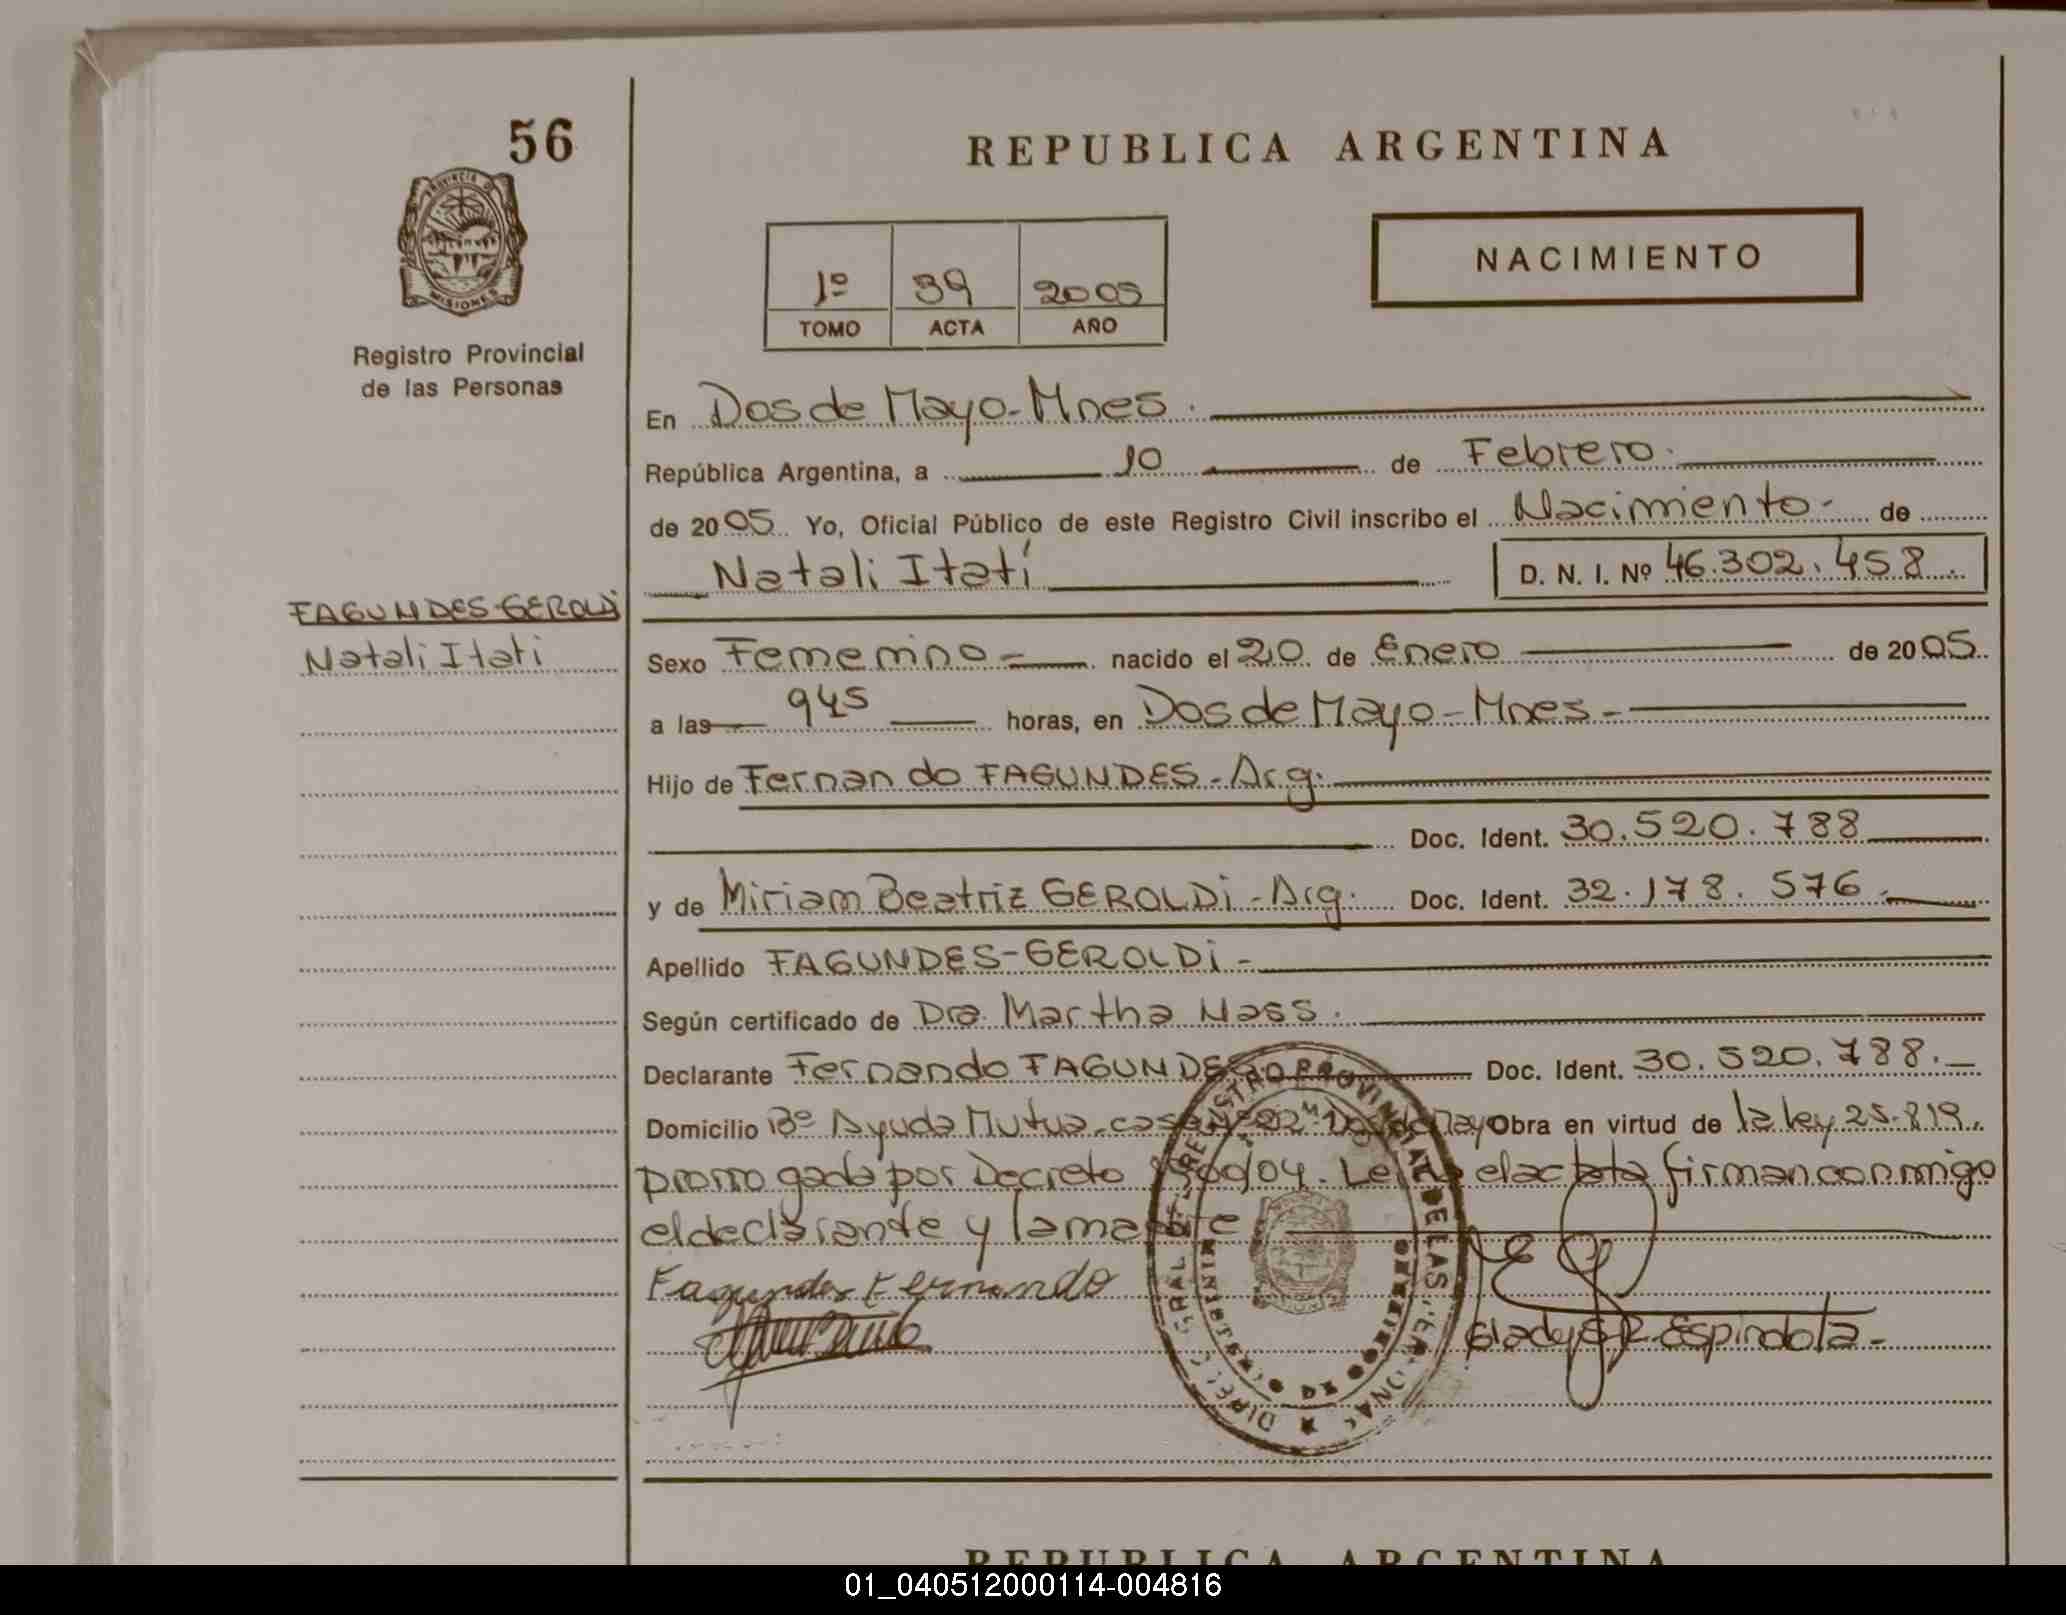 56
REPUBLICA ARGENTINA
PROVINCIA DE
MISIONES
Registro Provincial
de las Personas
1º 39 2005
TOMO ACTA AÑO
NACIMIENTO
En Dos de Mayo-Mnes.
República Argentina, a 10 de Febrero.
de 2005. Yo, Oficial Público de este Registro Civil inscribo el Nacimiento- de
Natali Itatí D. N. I. Nº 46.302.458.
FAGUNDES-GEROLDi
Natali Itati
Sexo Femenino- nacido el 20 de Enero de 2005.
a las 945 horas, en Dos de Mayo-Mnes-
Hijo de Fernando FAGUNDES-Arg.
Doc. Ident. 30.520.788
y de Miriam Beatriz GEROLDi-Arg. Doc. Ident. 32.178.576.
Apellido FAGUNDES-GEROLDi-
Según certificado de Dra. Martha Nass.
Declarante Fernando FAGUNDES Doc. Ident. 30.520.788.
Domicilio Bº Ayuda Mutua-casa Nº 22- Dos de Mayo Obra en virtud de la ley 25.819.
promo gada por Decreto /04. Leida el acta la firman conmigo
el declarante y la madre
Fagundes Fernando
Gladys R. Espindola-
REGISTRO PROVINCIAL DE LAS PERSONAS
REPUBLICA ARGENTINA
01_040512000114-004816